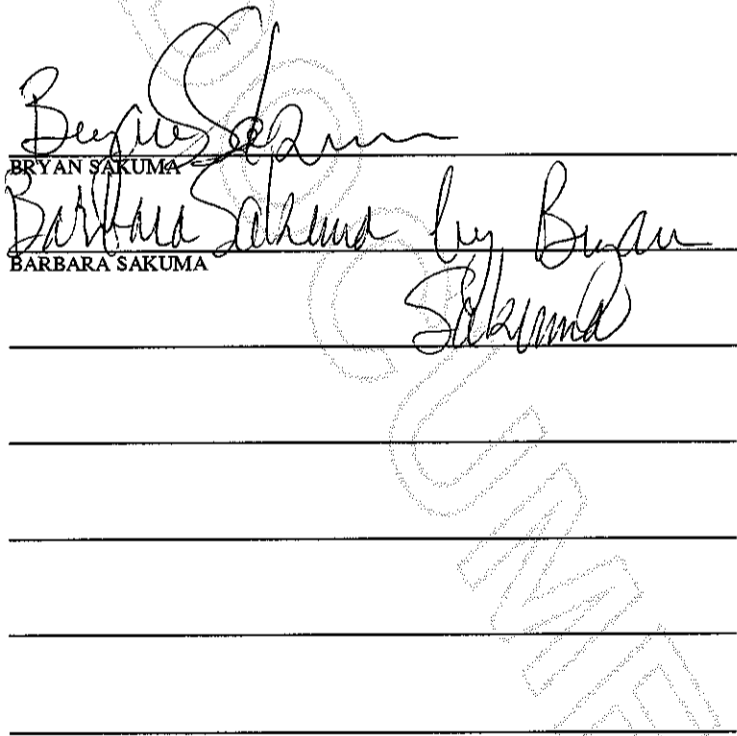 Bryan Sakuma
BRYAN SAKUMA
Barbara Sakuma by Bryan
BARBARA SAKUMA
Sakuma